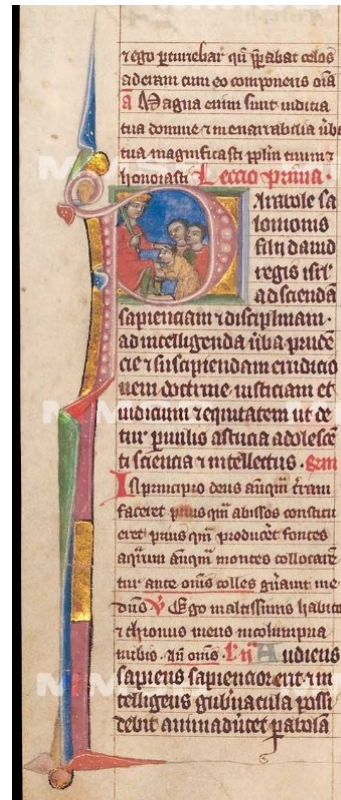 ⁊ ego pturebar qn̄ ꝓpabat celos
aderam cum eo componens oīa
a Magna enim sunt iudicia
tua domine ⁊ inenarrabilia ūba
tua magnificasti pplm̄ tuum ⁊
honorasti Leccio prima.
Parabole sa
lomonis
filii dauid
regis isrl̄
ad sciendā
sapienciam ⁊ disciplinam.
ad intelligenda ūba prudē
cie ⁊ suscipiendam erudicio
nem doctrine iusticiam et
iudicium ⁊ equitatem ut de
tur paruulis astucia adolescē
ti sciencia ⁊ intellectus.
In principio deus anqm̄ terram
faceret priusqm̄ abissos constitu
eret priusqm̄ producet fontes
aqrum anqm̄ montes collocarē
tur ante omīs colles gn̄auit me
dn̄s V Ego in altissimis habito
⁊ thronus meus in columpna
nubis. An̄ omīs. Audiens
sapiens sapiencior erit ⁊ in
telligens gubnacula possi
debit animaduertet parabolā